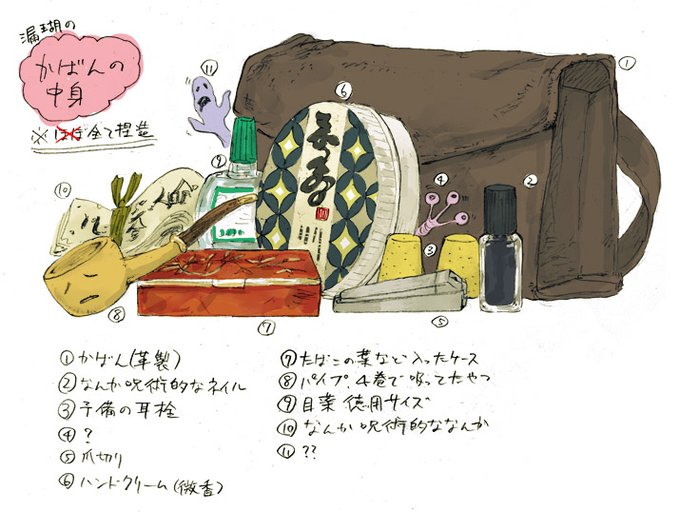 漏瑚の
かばんの
中身
※ ほぼ全て捏造
⑪
①
⑥
⑨
④
②
⑩
③
⑧
⑦
⑤
①かばん(革製)
②なんか呪術的なネイル
③予備の耳栓
④?
⑤爪切り
⑥ハンドクリーム(微香)
⑦たばこの葉など入ったケース
⑧パイプ。4巻で吸ってたやつ
⑨目薬 徳用サイズ
⑩なんか呪術的ななんか
⑪??